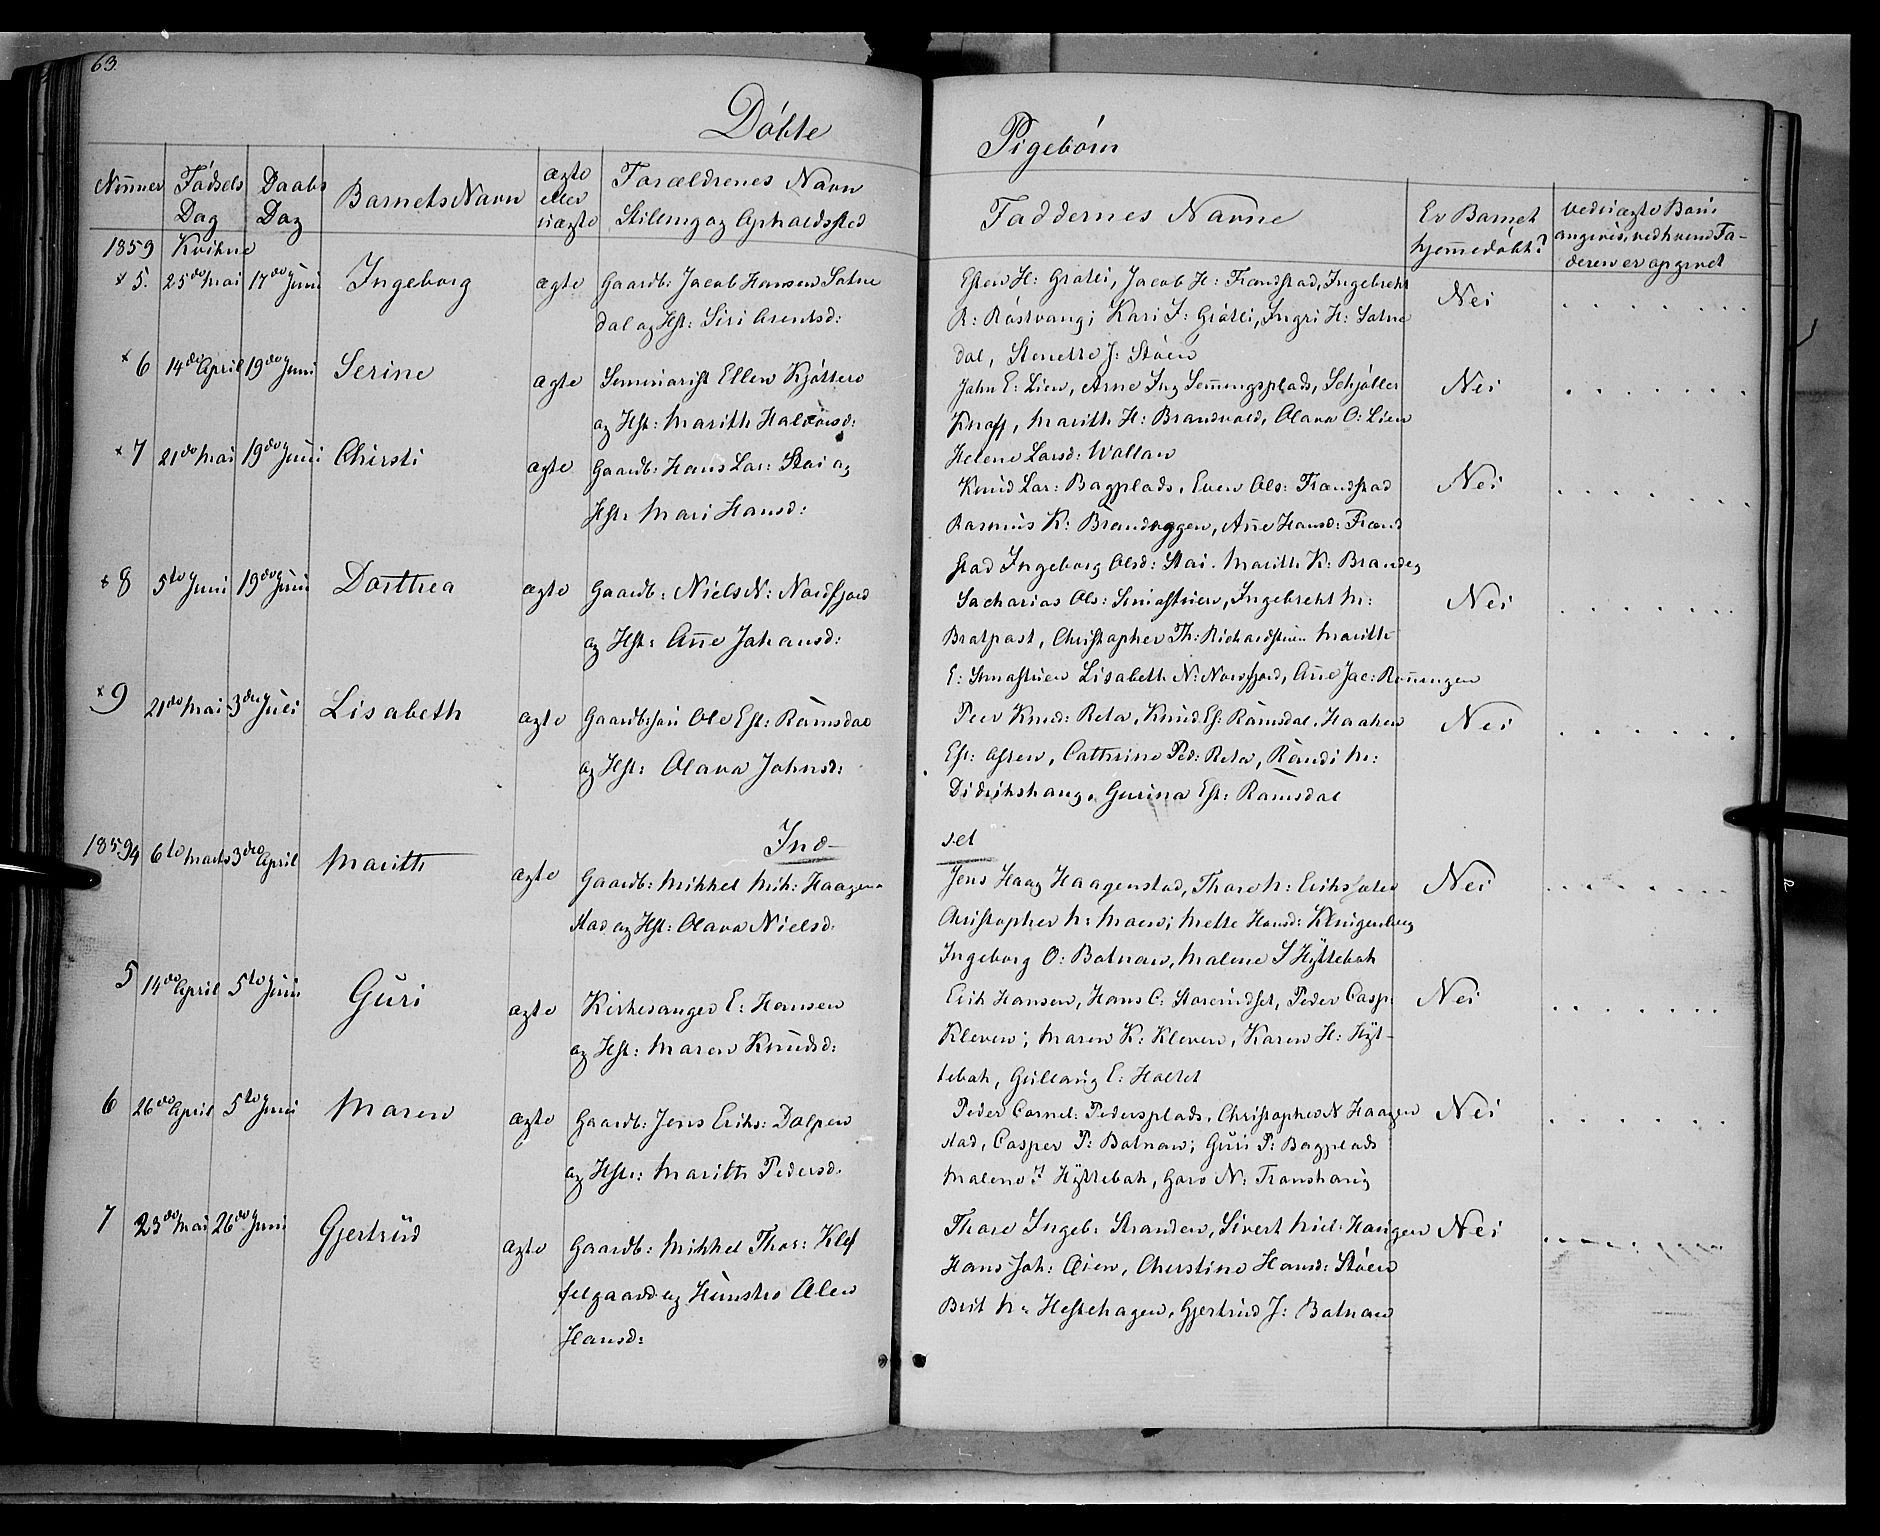 63.
Döbte Pigebörn
Nummer
Födsels Dag
Daabs Dag
Barnets Navn
ægte eller uægte
Forældrenes Navn
Stilling og Opholdssted
Faddernes Navne
Er Barnet hjemmedöbt?
ved uægte Barn angives, ved hvem Faderen er opgivet
1859 Kvikne
× 5. 25de Mai 17de Juni Ingeborg ægte Gaardb: Jacob Hansen Sætre
dal og Hst: Siri Arentsd:
Esten H: Grötli, Jacob H: Frandstad, Ingebreht
R: Röstvang; Kari J: Grötli, Ingri H: Sætre
dal, Stenette J: Stöen
Nei
× 6 14de April 19de Juni Serine ægte Seminarist Ellen Kjöttero
og Hst: Marith Halvorsd:
John E: Lien, Arne Ing Semmingsplads, Schjöller
Knoff, Marith H: Brandvold, Olava O: Lien
Helene Larsd: Wollan
Nei
× 7 21de Mai 19de Juni Chirsti ægte Gaardb: Hans Lar: Stai og
Hst: Mari Hansd:
Knud Lar: Bagplads, Even Ols: Frandstad
Rasmus K: Brandeggen, Anne Hansd: Frand
stad Ingeborg Olsd: Stai. Marith K: Brandeg
Nei
× 8 5te Juni 19de Juni Dorthea ægte Gaardb: Niels N: Nordfjord
og Hst: Anne Johansd:
Sacharias Ols: Smastuen, Ingebreht M:
Bratpast, Christopher Th: Richardstuen Marith
E: Smastuen Lisabeth N: Nordfjord, Anne Jac: Rönningen
Nei
× 9 21de Mai 3die Juli Lisabeth ægte Gaardb: sön Ole Est: Ramsdal
og Hst: Olava Johnsd:
Peer Knud: Reta, Knud Es: Ramsdal, Haaken
Est: Asten, Cathrine Ped: Reta, Randi M:
Didrikshaug, Gurina Est: Ramsdal
Nei
Ind-
set
1859 4 6te Marts 3die April Marith ægte Gaardb: Mikkel Mik: Haagen-
stad og Hst: Olava Nielsd.
Jens Haag Haagenstad, Thore h: Erikssæter
Christopher N: Moen; Mette Hansd: Klingenberg
Ingeborg O: Botnan, Malene S Hyttebak
Nei
5 14de April 5te Juni Guri ægte Kirkesanger E: Hansen
og Hst: Maren Knudsd:
Erik Hansen, Hans C: Storeindset, Peder Casp:
Kleven; Maren K: Kleven, Karen H: Hyt-
tebak, Gullaug E: Holtet
Nei
6 26de April 5te Juni Maren ægte Gaardb: Jens Eriks: Dolpen
og Hst: Marith Pedersd.
Peder Cornel: Pedersplads, Christopher N Haagen
stad, Casper P: Botnan; Guri P: Bagplads
Malene S Hyttebak, Goro N: Franshaug
Nei
7 23de Mai 26de Juni Gjertrüd ægte Gaardb: Mikkel Thor: Klef
felgaard og Hünstro Alen
Hansd:
Thore Ingeb: Stranden, Sivert Niel: Haugen
Hans Joh: Aien, Cherstine Hansd: Stöen
Brit N: Hestehagen, Gjertrud J: Botnan
Nei